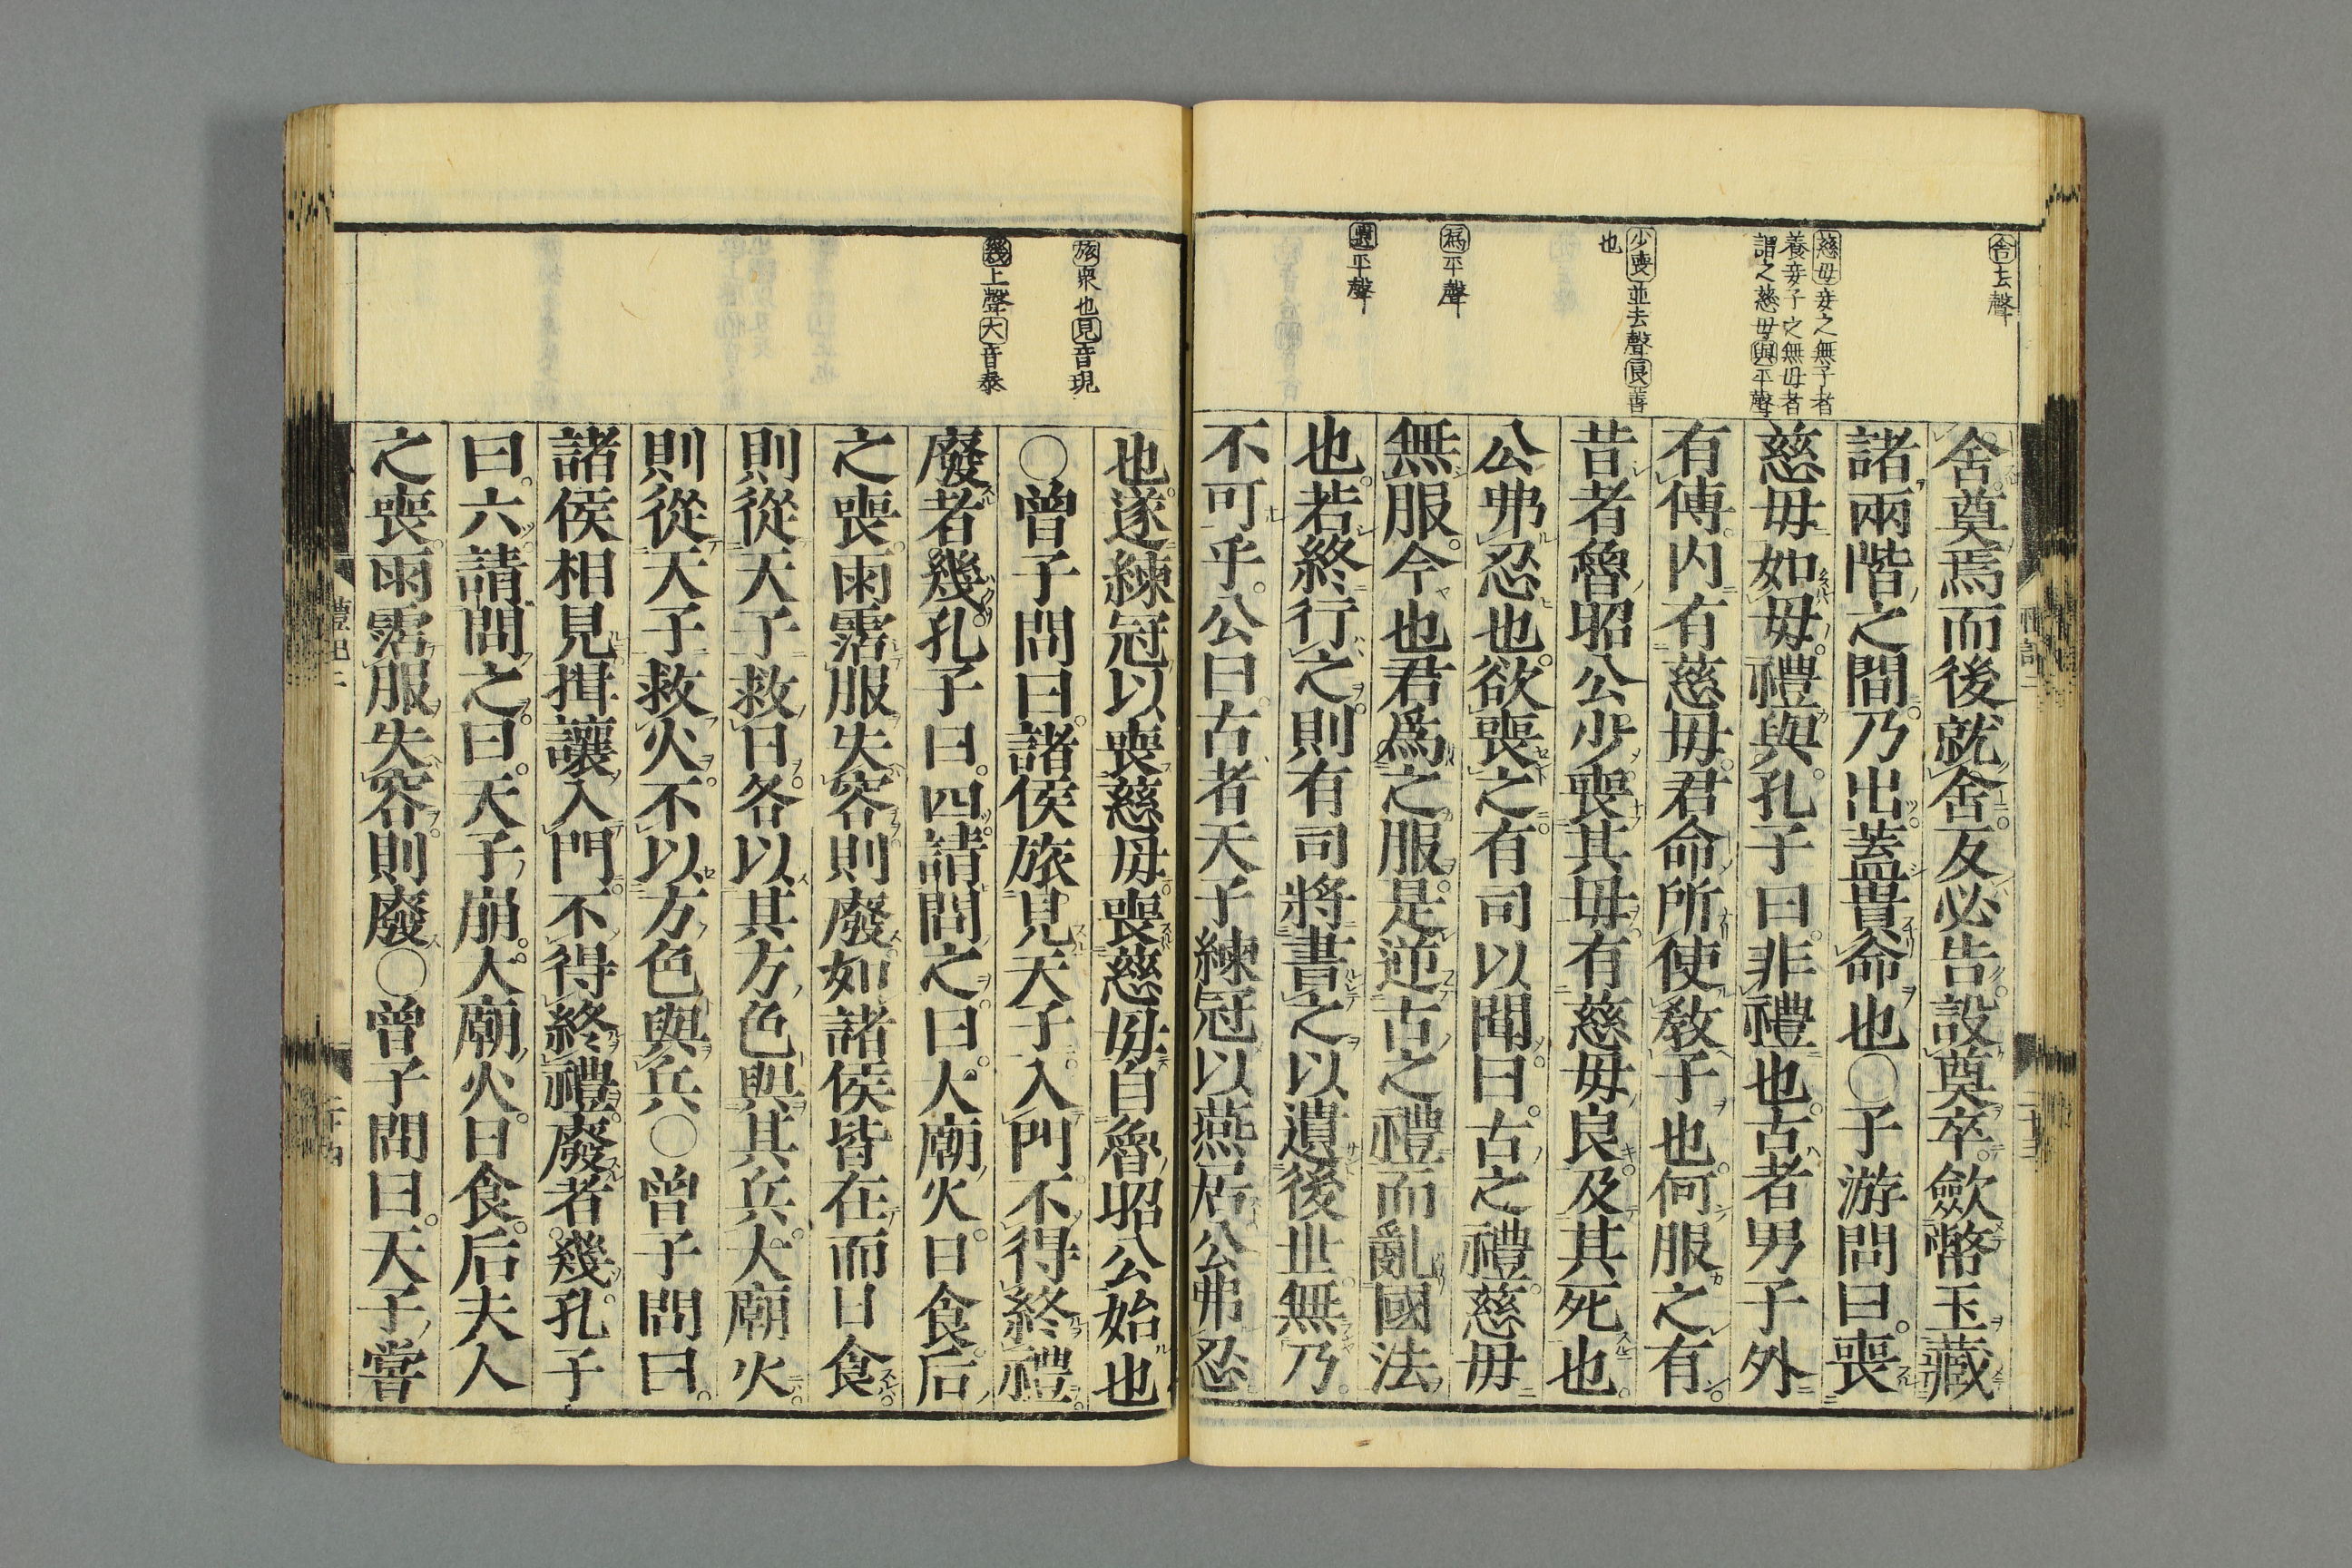 舍去聲
慈毋妾之無子者
養妾子之無毋者
謂之慈毋與平聲
少喪並去聲良善
也
爲平聲
遺平聲
舍奠焉而後就舍反必告設奠卒歛幣玉藏
諸兩階之間乃出蓋貴命也〇子游問曰喪
慈毋如毋禮與孔子曰非禮也古者男子外
有傅内有慈毋君命所使敎子也何服之有
昔者魯昭公少喪其毋有慈毋良及其死也
公弗忍也欲喪之有司以聞曰古之禮慈毋
無服今也君爲之服是逆古之禮而亂國法
也若終行之則有司將書之以遺後世無乃
不可乎公曰古者天子練冠以燕居公弗忍
旅衆也見音現
幾上聲大音泰
也遂練冠以喪慈毋喪慈毋自魯昭公始也
〇曾子問曰諸侯旅見天子入門不得終禮
廢者幾孔子曰四請問之曰大廟火日食后
之喪雨霑服失容則廢如諸侯皆在而日食
則從天子救日各以其方色與其兵大廟火
則從天子救火不以方色與兵〇曾子問曰
諸侯相見揖讓入門不得終禮廢者幾孔子
曰六請問之曰天子崩大廟火日食后夫人
之喪雨霑服失容則廢〇曾子問曰天子嘗
禮記二